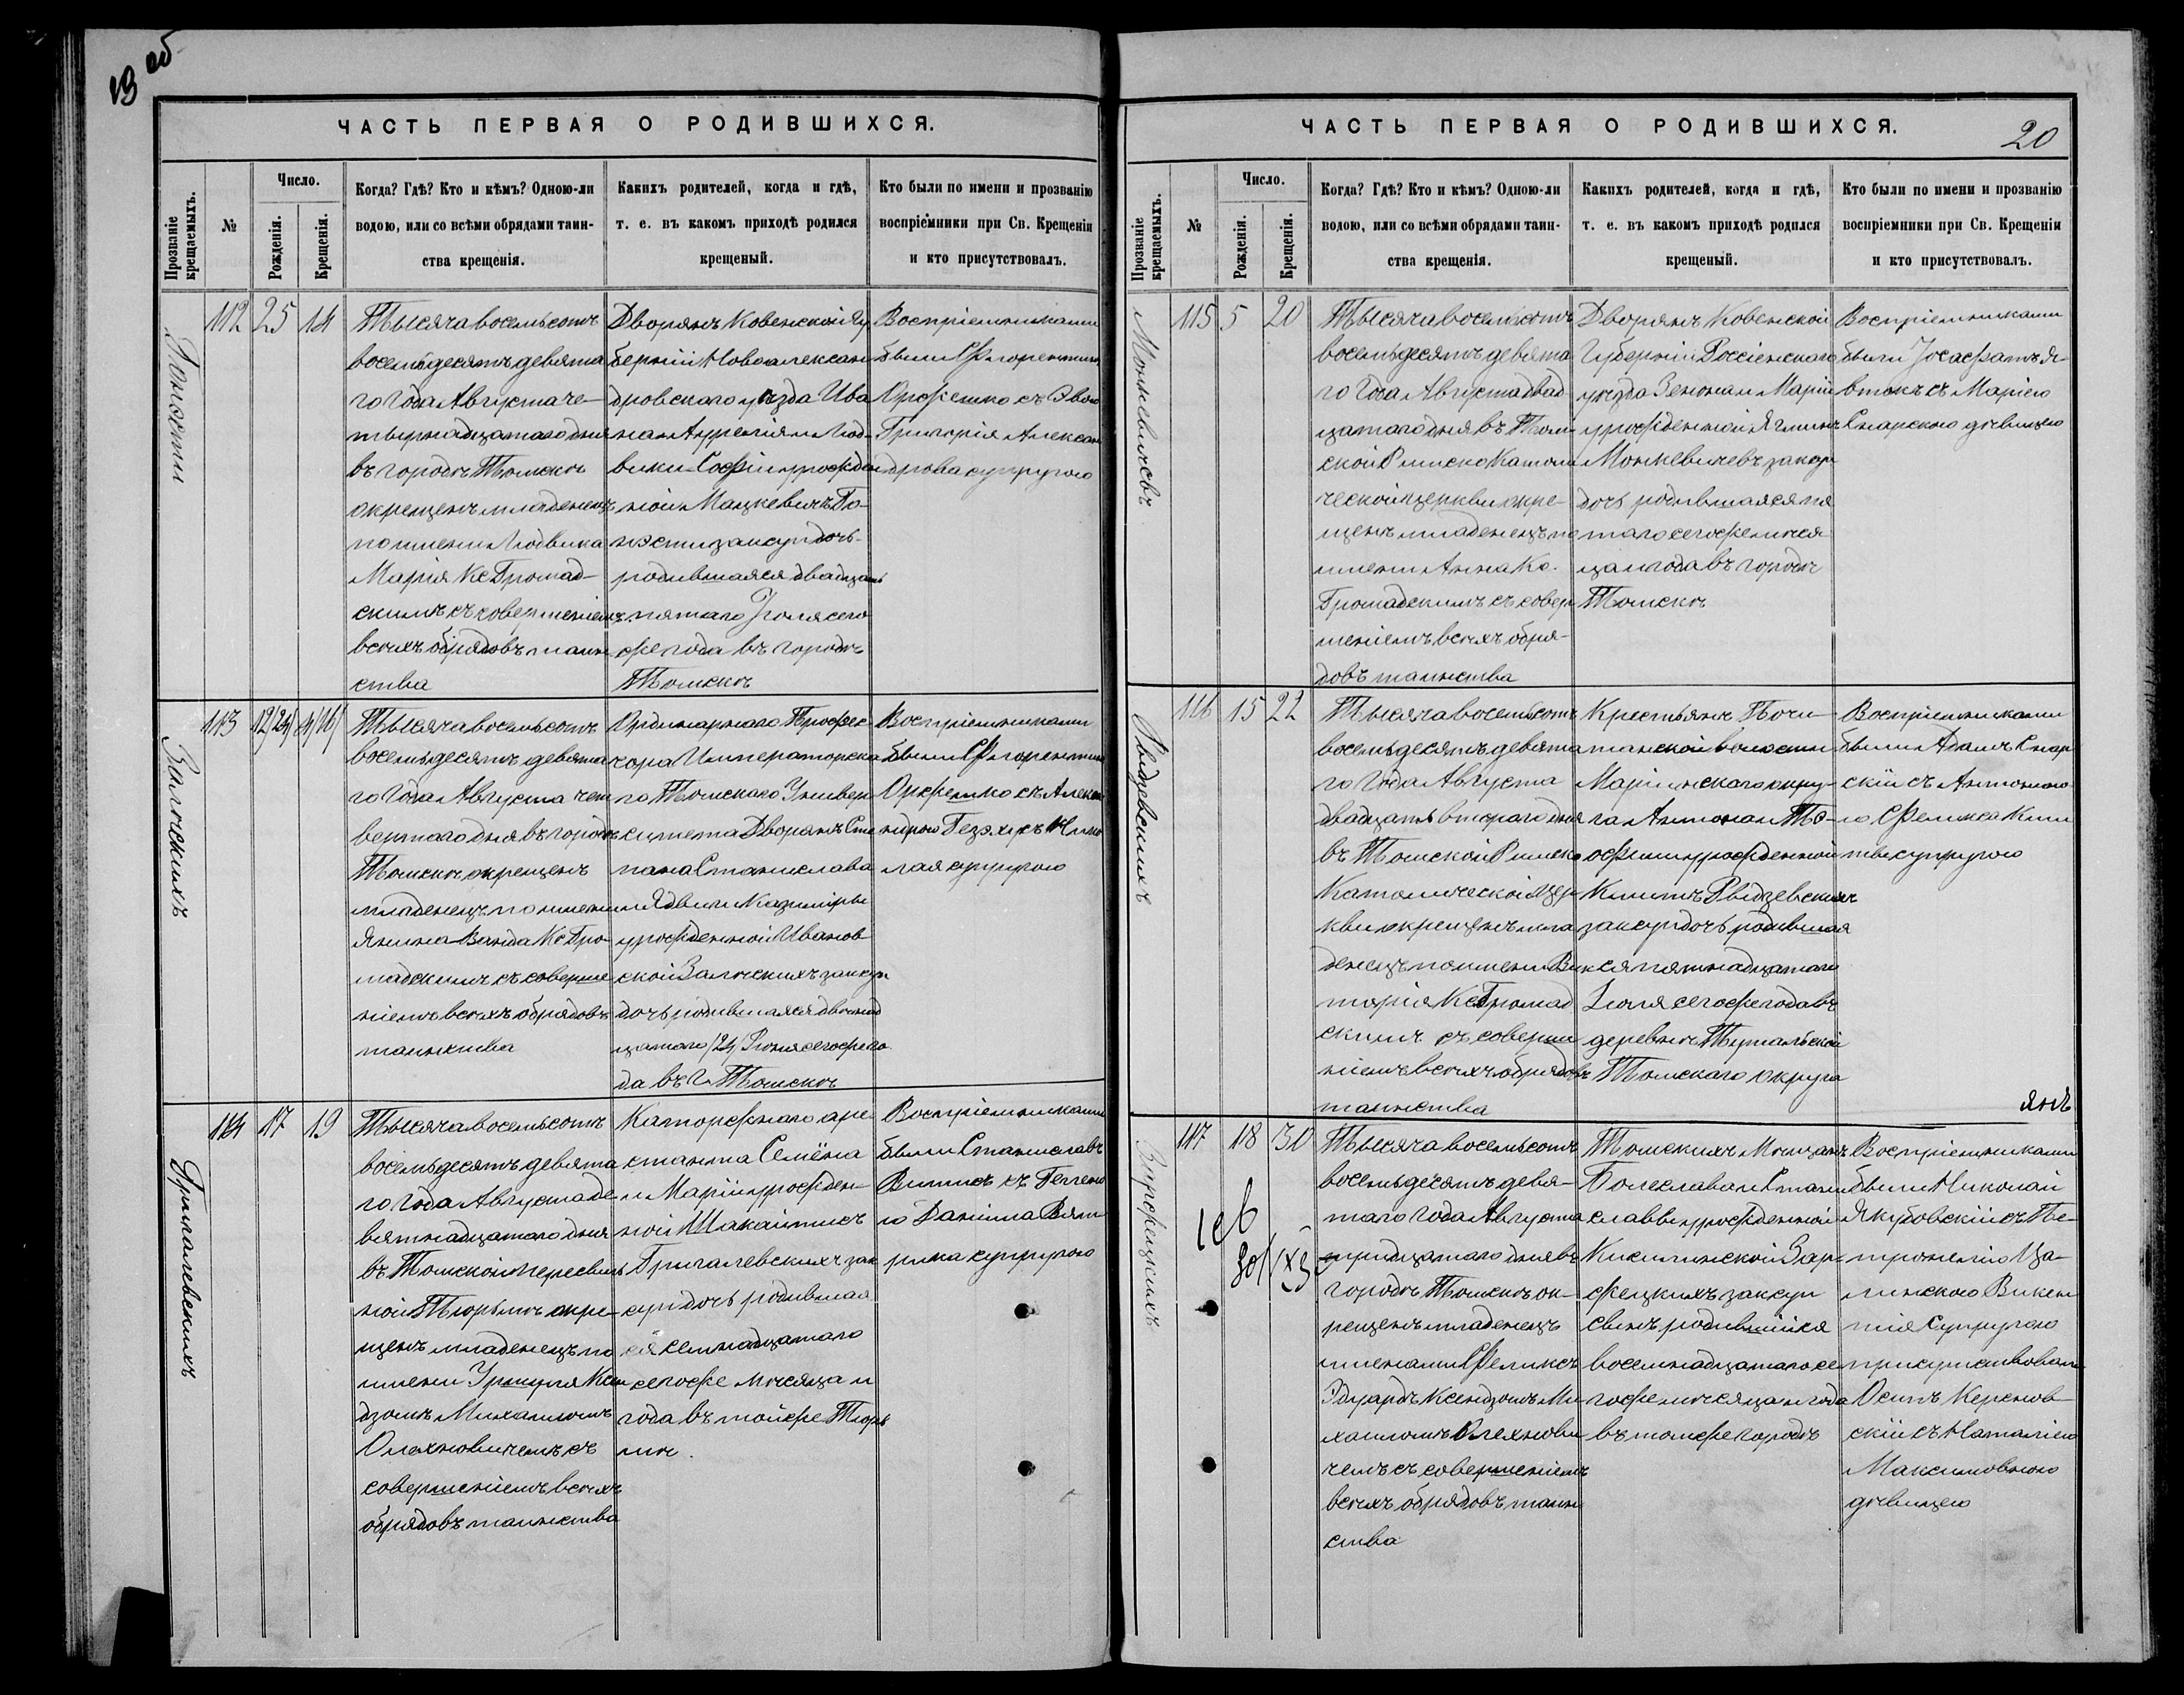 19 об
ЧАСТЬ ПЕРВАЯ О РОДИВШИХСЯ.
Прозваніе крещаемыхъ.
№
Число.
Рожденія.
Крещенія.
Когда? Гдѣ? Кто и кѣмъ? Одною-ли
водою, или со всѣми обрядами таин-
ства крещенія.
Какихъ родителей, когда и гдѣ,
т. е. въ какомъ приходѣ родился
крещеный.
Кто были по имени и прозванію
воспріемники при Св. Крещеніи
и кто присутствовалъ.
112 25 14
Тысяча восемьсотъ
восемьдесятъ девята
го года Августа че-
тырнадцатаго дня
въ городѣ Томскѣ
окрещенъ младенецъ
по имени Людвика
Марія Кс Громад-
скимъ съ совершеніемъ
всѣхъ обрядовъ таин
ства
Дворянъ Ковенской Гу
берніи Новоалексан
дровскаго уѣзда Ива
на и Людо-
вики Софіи урожден
ной Мацкевичъ
закон дочь
родившаяся двадцать
пятаго Іюля сего
же года въ городѣ
Томскѣ
Воспріемниками
были Флорентинъ
Оржешко съ
Григорія Алексан
дрова супругою
Залѣскихъ
113 12/24/ 4/16/
Тысяча восемьсотъ
восемьдесятъ девята
го года Августа чет
вертаго дня въ городѣ
Томскѣ окрещенъ
младенецъ по имени
Янина Ванда Кс Гро
мадскимъ съ соверше
ніемъ всѣхъ обрядовъ
таинства
Ординарнаго Профес
сора Императорска
го Томскаго Универ
ситета Дворянъ Сте
пана Станислава
и Ядвиги Казиміры
урожденной Иванов
ской Залѣскихъ закон
дочь родившаяся двѣнад
цатаго /24/ сего же го
да въ г. Томскѣ
Воспріемниками
были Флорентинъ
Оржешко съ Алекса
ндрою Нико
лая супругою
Григалевскихъ
114 17 19
Тысяча восемьсотъ
восемьдесятъ девята
го года Августа де
вятнадцатаго дня
въ Томской пересыль
ной Тюрьмѣ окре-
щенъ младенецъ по
имени Уршуля Ксен
дзомъ Михаиломъ
Олехновичемъ съ
совершеніемъ всѣхъ
обрядовъ таинства
Каторжнаго аре
станта Семёна
и Маріи урожден-
ной
Григалевскихъ зак
дочь родившая
ся семнадцатаго
сего же мѣсяца и
года въ той же Тюрь
мѣ.
Воспріемниками
были Станиславъ
съ
Даніила
супругою
20
ЧАСТЬ ПЕРВАЯ О РОДИВШИХСЯ.
Прозваніе крещаемыхъ.
№
Число.
Рожденія.
Крещенія.
Когда? Гдѣ? Кто и кѣмъ? Одною-ли
водою, или со всѣми обрядами таин-
ства крещенія.
Какихъ родителей, когда и гдѣ,
т. е. въ какомъ приходѣ родился
крещеный.
Кто были по имени и прозванію
воспріемники при Св. Крещеніи
и кто присутствовалъ.
Монкевичевъ
115 5 20
Тысяча восемьсотъ
восемьдесятъ девята
го года Августа двад
цатаго дня въ Том
ской Римско Католи
ческой церкви окре-
щенъ младенецъ по
имени Анна Кс.
Громадскимъ съ совер
шеніемъ всѣхъ обря-
довъ таинства
Дворянъ Ковенской
Губерніи Россіенскаго
уѣзда Зенона и Маріи
урожденной
Монкевичевъ закон
дочь родившаяся пя
таго сего же мѣся
ца и года въ городѣ
Томскѣ
Воспріемниками
были
съ Маріею
Снарскою дѣвицею
116 15 22
Тысяча восемьсотъ
восемьдесятъ девята
го года Августа
двадцать втораго дня
въ Томской Римско
Католической цер
кви окрещенъ мла
денецъ по имени Вик
торія Кс Громад
скимъ съ соверше
ніемъ всѣхъ обрядовъ
таинства
Крестьянъ Почи-
танской волости
Маріинскаго окру-
га Антона и Те-
офили урожденной
закон дочь родившая
ся пятнадцатаго
Іюля сего же года въ
деревнѣ Тутальской
Томскаго округа
Воспріемниками
были Адамъ Снар
скій съ Антонин
ю Феликса
супругою
янъ
117 18 30
Тысяча восемьсотъ
восемьдесятъ девя-
таго года Августа
тридцатаго дня въ
городѣ Томскѣ ок-
рещенъ младенецъ
именами Феликсъ
Эдуардъ Ксендзомъ Ми
хаиломъ Олехнови
чемъ съ совершеніемъ
всѣхъ обрядовъ таин
ства
Томскихъ Мѣщанъ
Болеслава и Стани
славы урожденной
закон
сынъ родившійся
восемнадцатаго се
го же мѣсяца и года
въ томъ же городѣ
Воспріемниками
были Николай
Якубовскій съ Пе-
тронелію
Викен
тія Супругою
присутствовали
Осипъ
съ Наталіею
Максимовною
дѣвицею